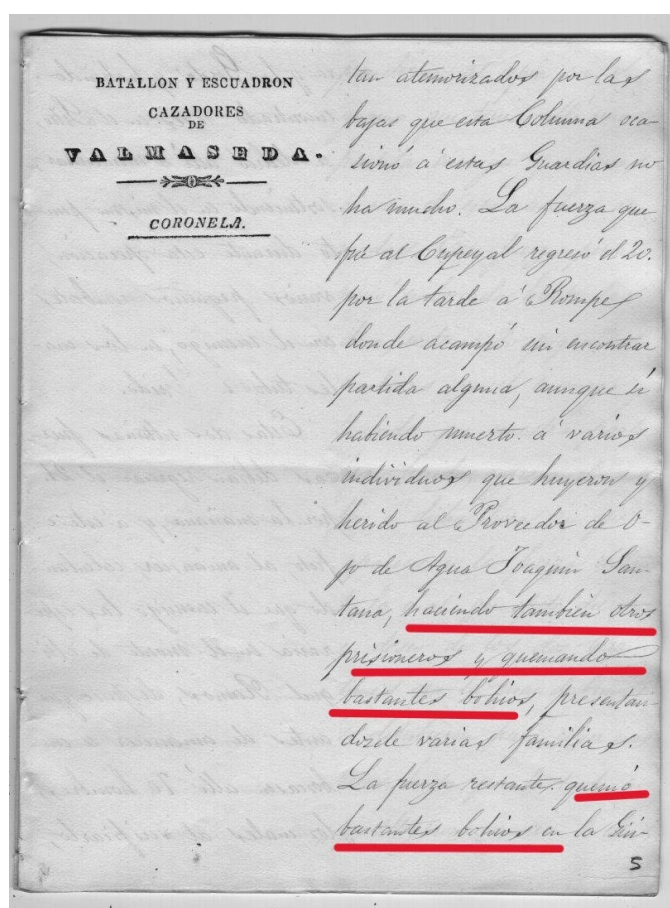 BATALLON Y ESCUADRON
CAZADORES
DE
VALMASEDA.
CORONELA.
tan atemorizados por las
bajas que esta Columna oca-
sionó á estas Guardias no
ha mucho. La fuerza que
fué al Cupeyal regresó el 20.
por la tarde á Rompe
donde acampó sin encontrar
partida alguna, aunque si
habiendo muerto á varios
individuos que huyeron y
herido al Proveedor de O-
jo de Agua Joaquin San-
tana, haciendo tambien otros
prisioneros y quemando
bastantes bohios, presentan-
dosele varias familias.
La fuerza restante quemó
bastantes bohios en la
5